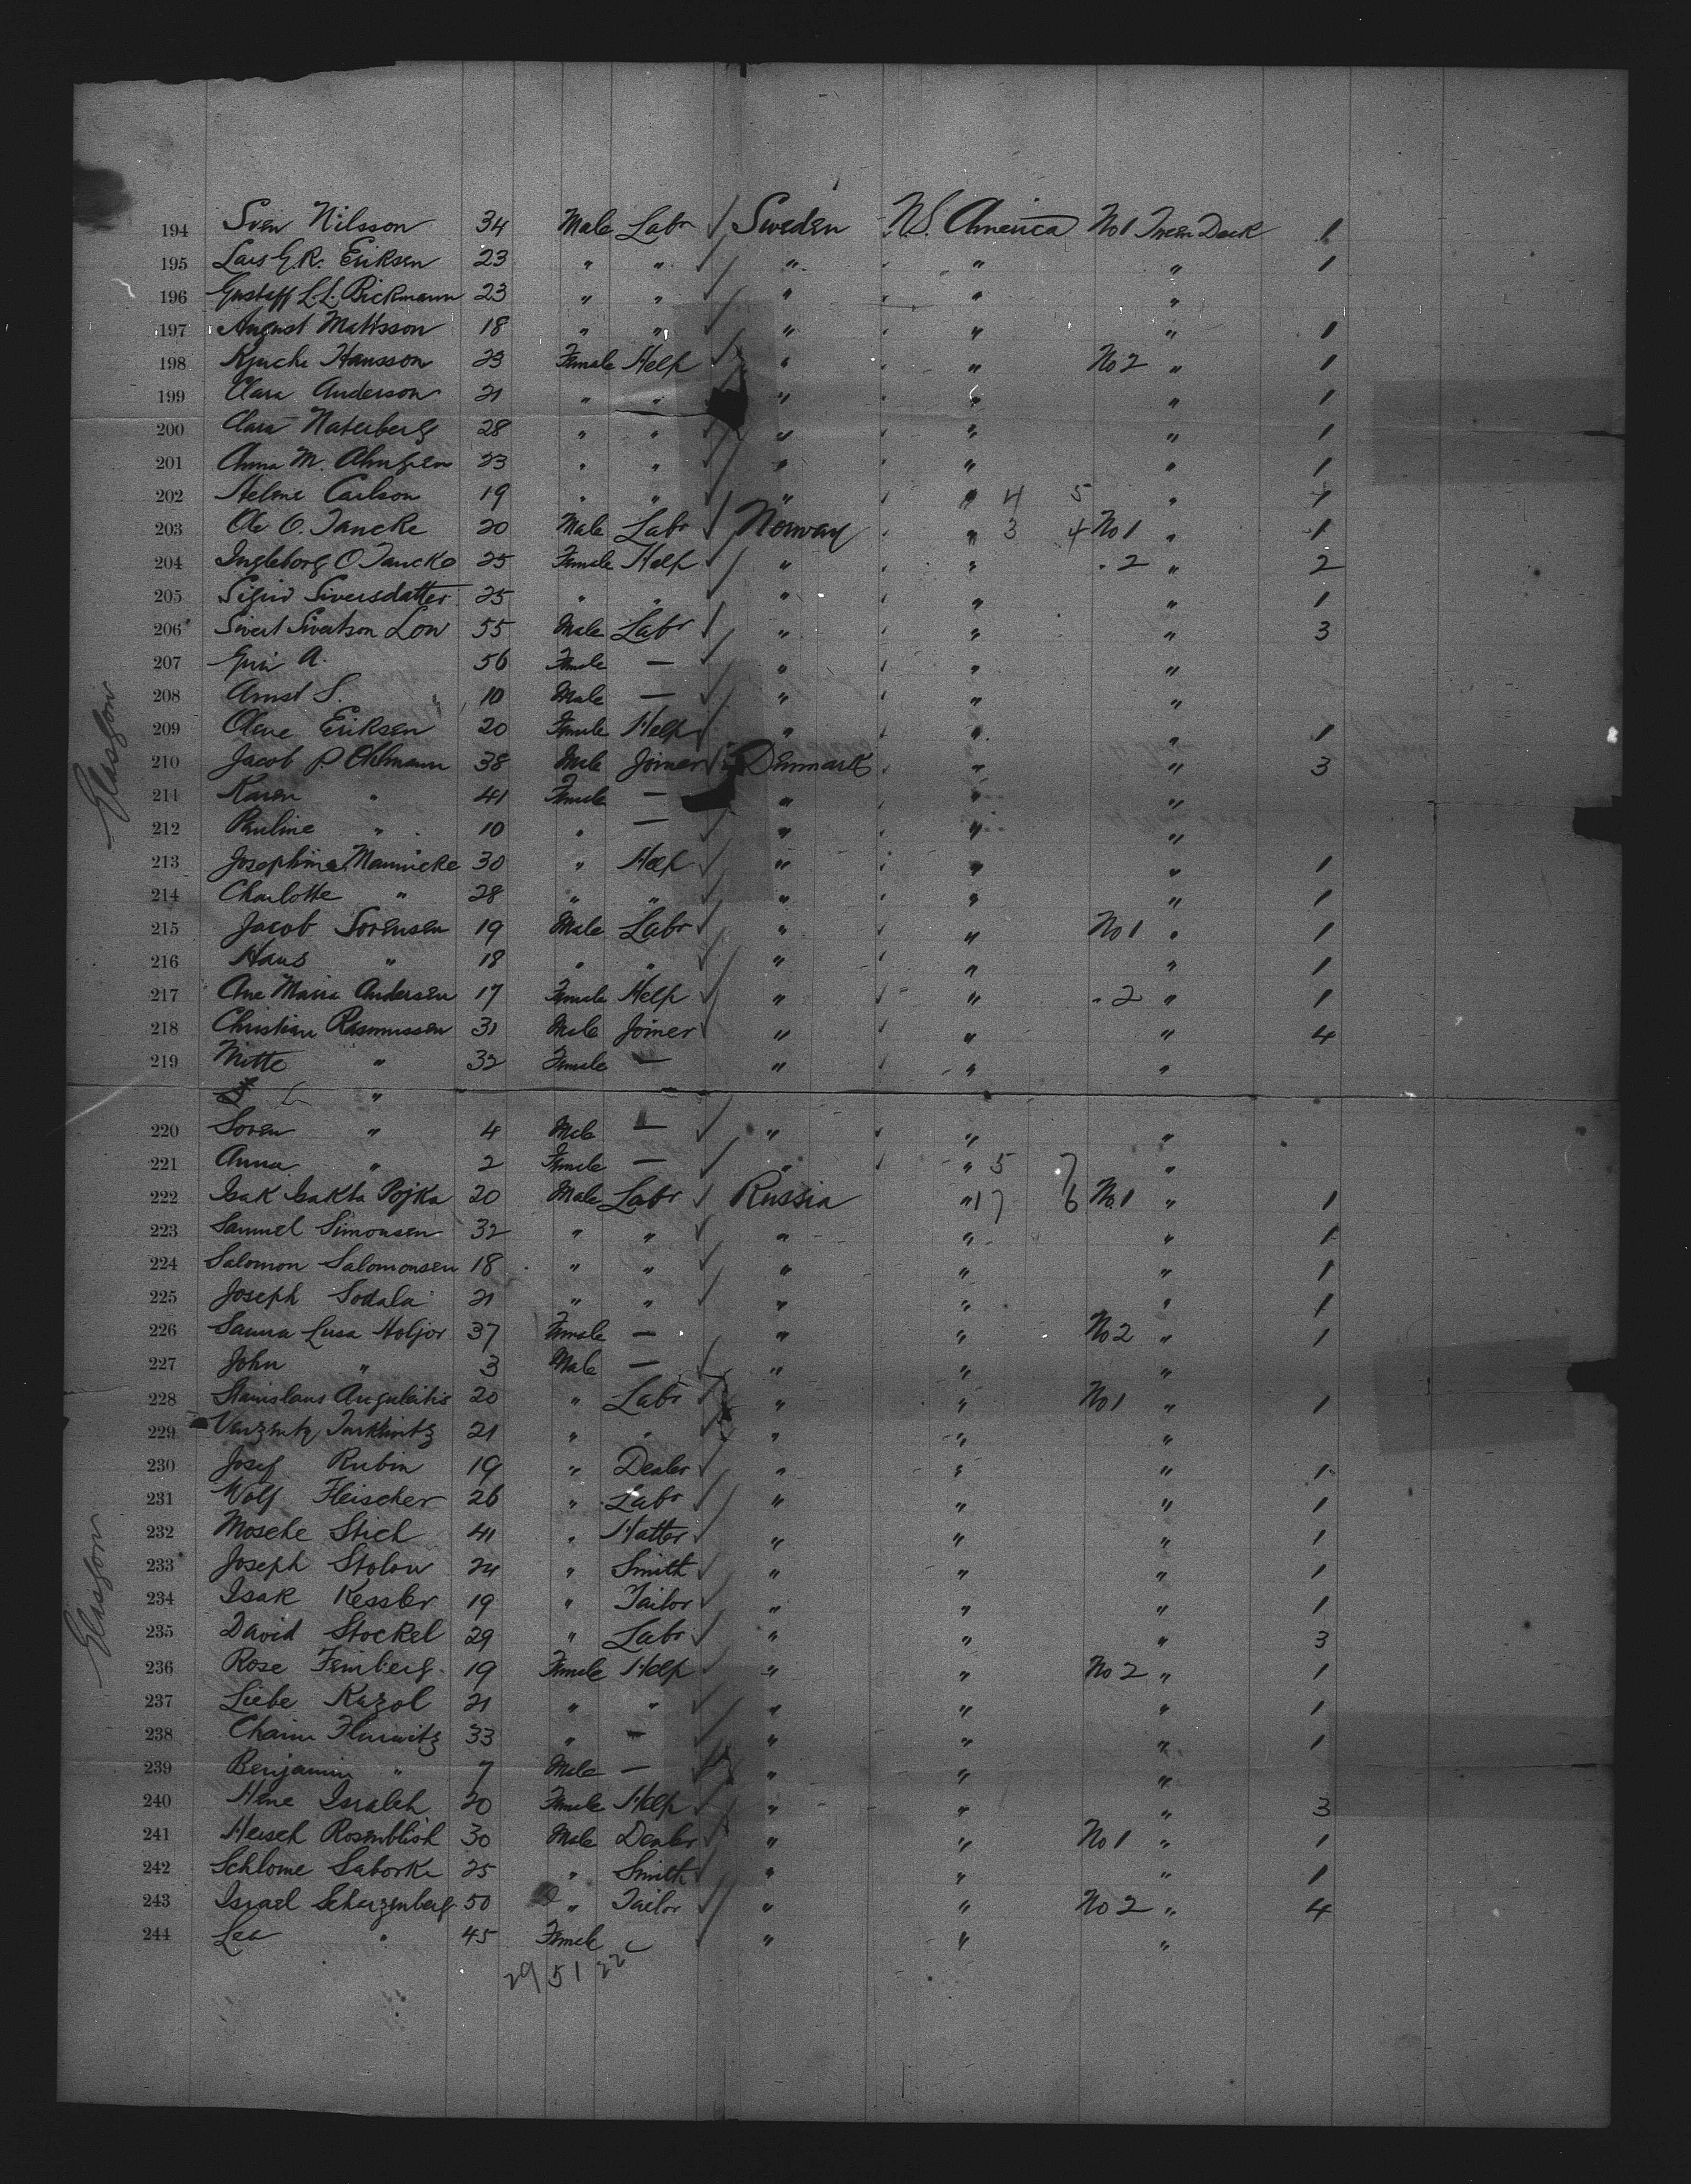 194 Sven Nilsson 34 Male Labr Sweden N.S. America No 1 Tween Deck 1
195 Lars G. R. Eriksen 23 " " " " " 1
196 Gustaff L. L. Bickmann 23 " " " " "
197 August Mattsson 18 " " " " " 1
198 Hansson 23 Female Help " " No 2 " 1
199 Clara Anderson 21 " " " " " 1
200 Clara Naterberg 28 " " " " " 1
201 Anna M. 23 " " " " " 1
202 Helene Carlson 19 " " " " 4 5 " 1
203 Ole O. Tancke 20 Male Labr Norway " 3 4 No 1 " 1
204 Ingleborg O Tancke 25 Female Help " " " 2 " 2
205 Sigrid Siversdatter 25 " " " " " 1
206 Sivert Sivertson Low 55 Male Labr " " " 3
207 Guri A. 56 Female — " " "
208 Arnst S. 10 Male — " " "
209 Olene Eriksen 20 Female Help " " " 1
210 Jacob P. Ohlmann 38 Male Joiner Denmark " " 3
211 Karen " 41 Female — " " "
212 Pauline " 10 " — " " "
213 Josephine Mannicke 30 " Help " " " 1
214 Charlotte " 28 " " " " " 1
215 Jacob Sorensen 19 Male Labr " " No 1 " 1
216 Hans " 18 " " " " " 1
217 Ane Maria Andersen 17 Female Help " " " 2 " 1
218 Christian Rasmussen 31 Male Joiner " " " 4
219 Mitte " 32 Female — " " "
"
220 Soren " 4 Male — " " "
221 Anna " 2 Female — " " 5 7 "
222 Isak Isakta Pojka 20 Male Labr Russia " 17 6 No 1 " 1
223 Samuel Simonsen 32 " " " " " 1
224 Salomon Salomonsen 18 " " " " " 1
225 Joseph Sodala 21 " " " " " 1
226 Sanna Lusa Holjor 37 Female — " " No 2 " 1
227 John " 3 Male — " " "
228 Stanislaus Angulaitis 20 " Labr " " No 1 " 1
229 21 " " " " "
230 Josef Rubin 19 " Dealer " " " 1
231 Wolf Fleischer 26 " Labr " " " 1
232 Mosche Stich 41 " Hatter " " " 1
233 Joseph Stolow 24 " Smith " " " 1
234 Isak Kessler 19 " Tailor " " " 1
235 David Stockel 29 " Labr " " " 3
236 Rose Feinberg 19 Female Help " " No 2 " 1
237 Liebe Kazol 21 " " " " " 1
238 Chaim Hurwitz 33 " — " " " 1
239 Benjamin " 7 Male — " " "
240 Hene Israleh 20 Female Help " " " 3
241 Hersch Rosenblish 30 Male Dealer " " No 1 " 1
242 Schlome Saborke 25 " Smith " " " 1
243 Israel Scharzenberg 50 " Tailor " " No 2 " 4
244 Lea " 45 Female " " "
29 51 22
Glasgow
Glasgow